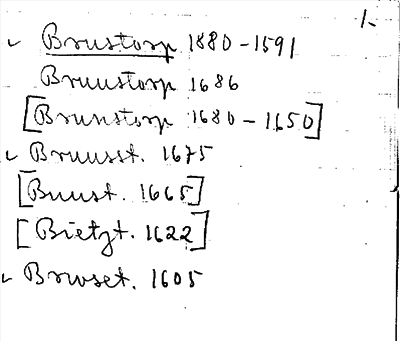 1.
Brustorp 1880-1591
Bruustorp 1686
[Brunstorp 1680-1650]
Bruusst. 1675
[Buust. 1665]
[Bietzt. 1622]
Brwset. 1605